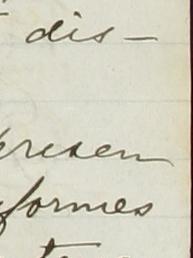 dis-
presen
formes